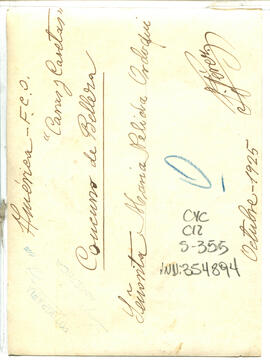 America - F.C.O.
"Caras y Caretas"
Concurso de Belleza
Señorita Maria Pelidia Ordoqui
Octubre - 1925
CYC
C12
S-355
INV: 354894